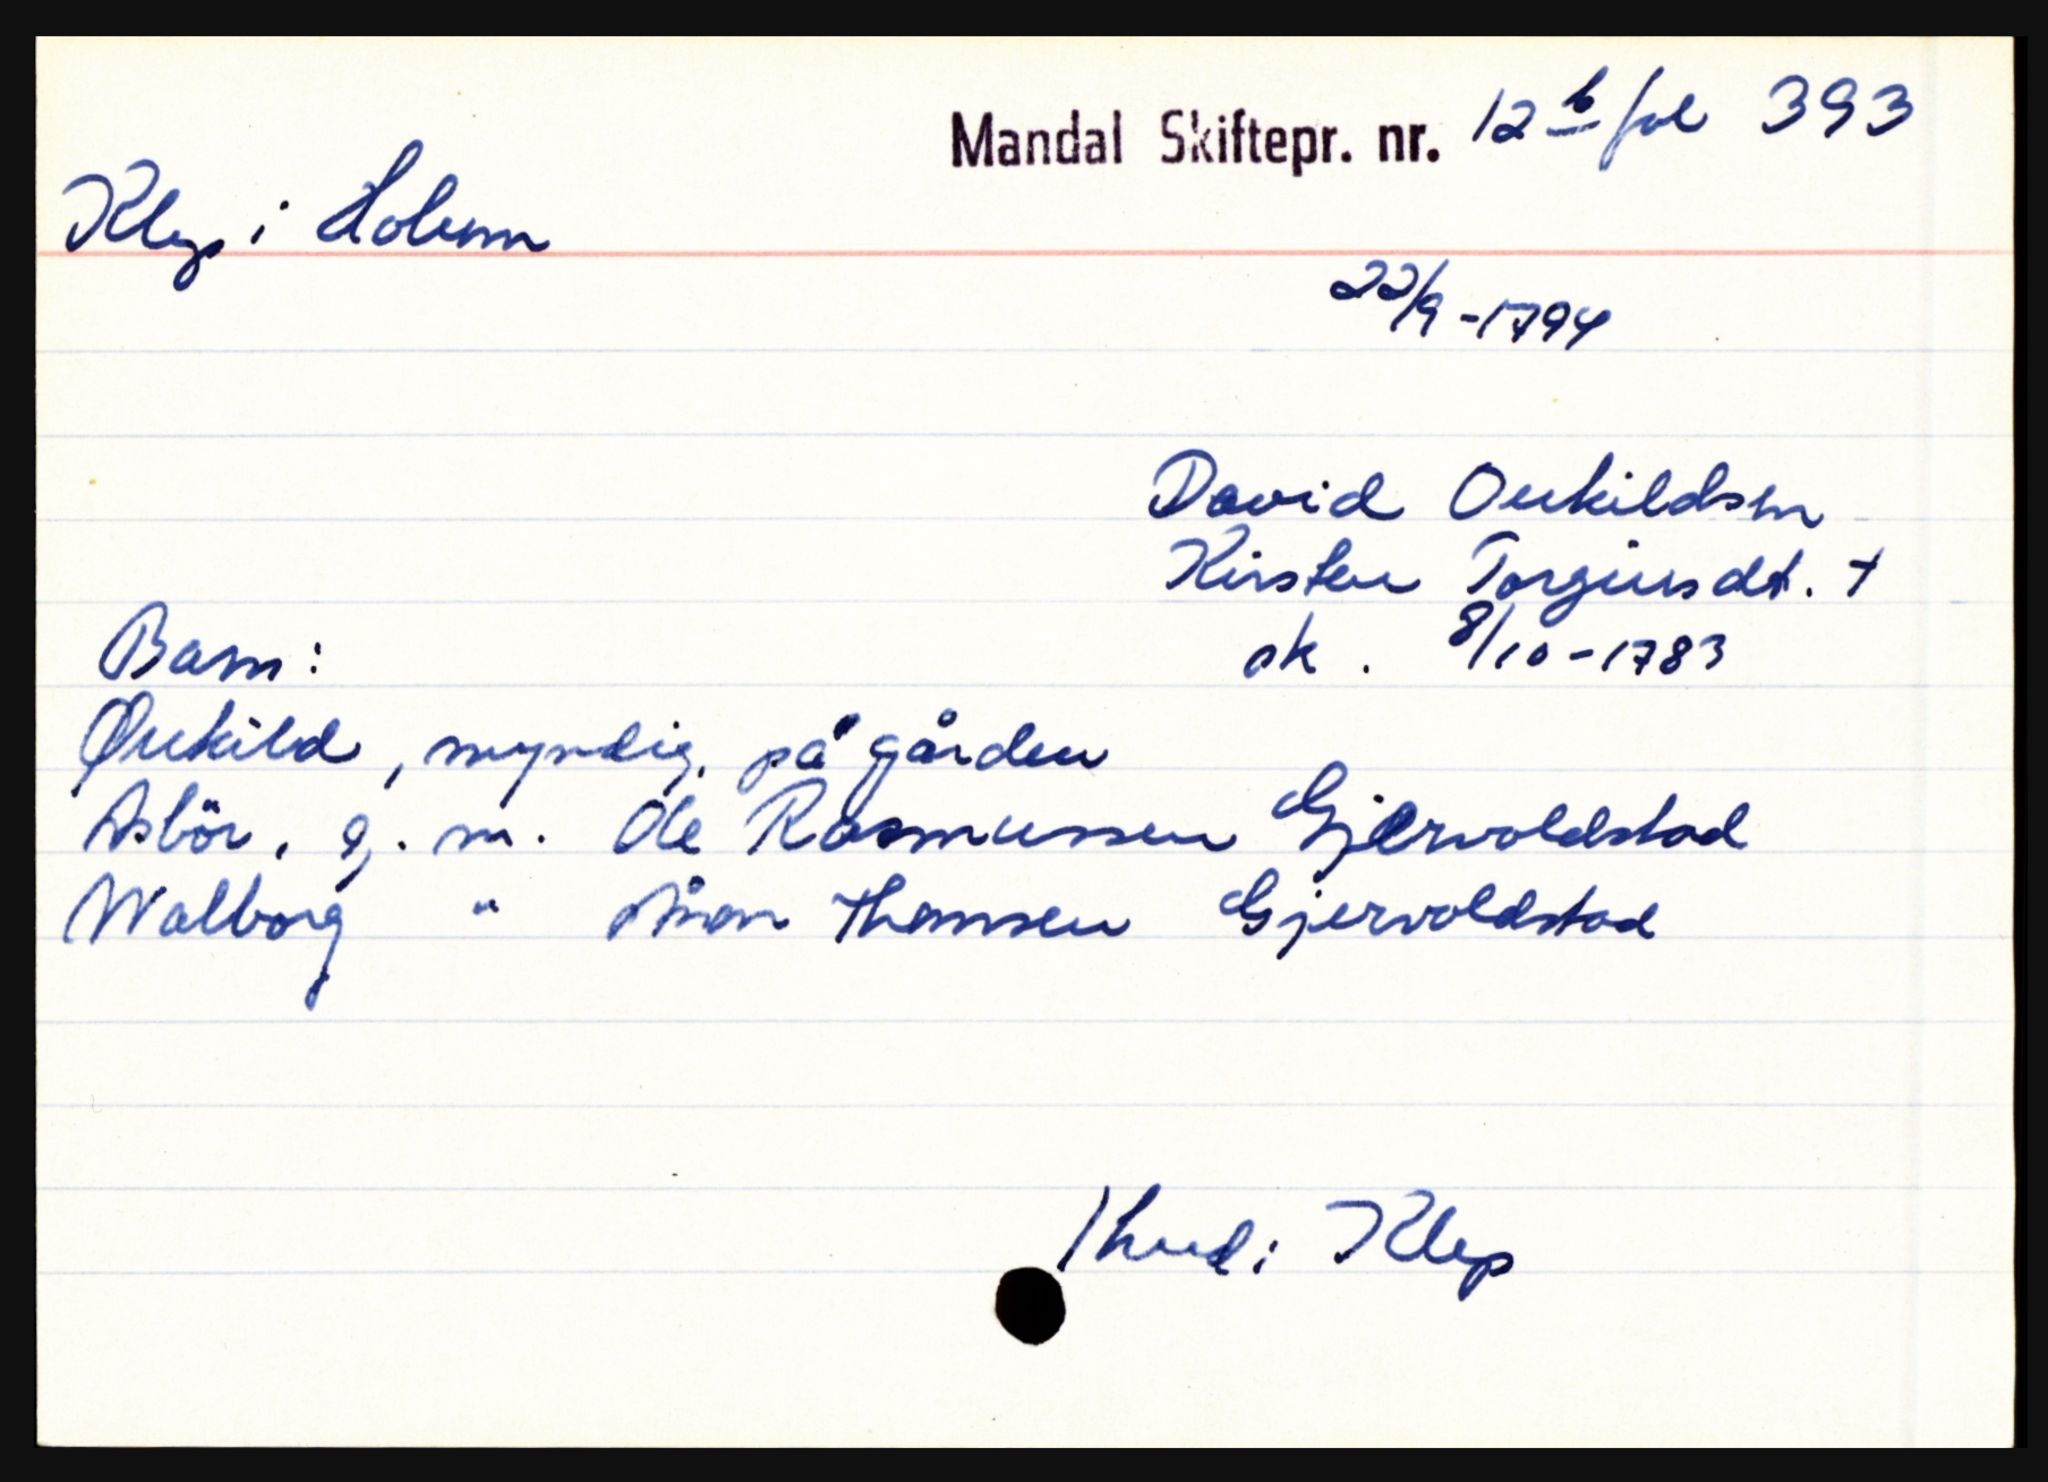 Mandal Skiftepr. nr. 12 b fol 393
Klep i Holum
22/9 - 1794
David Oukildsen
Kirsten Torgiusdt. +
sk. 8/10 - 1783
Barn:
Øukild, myndig, på gården
Asbör, g. m. Ole Rasmussen Gjervoldstad
Walborg " Simon Thomsen Gjervoldstad
1 hud i Klep